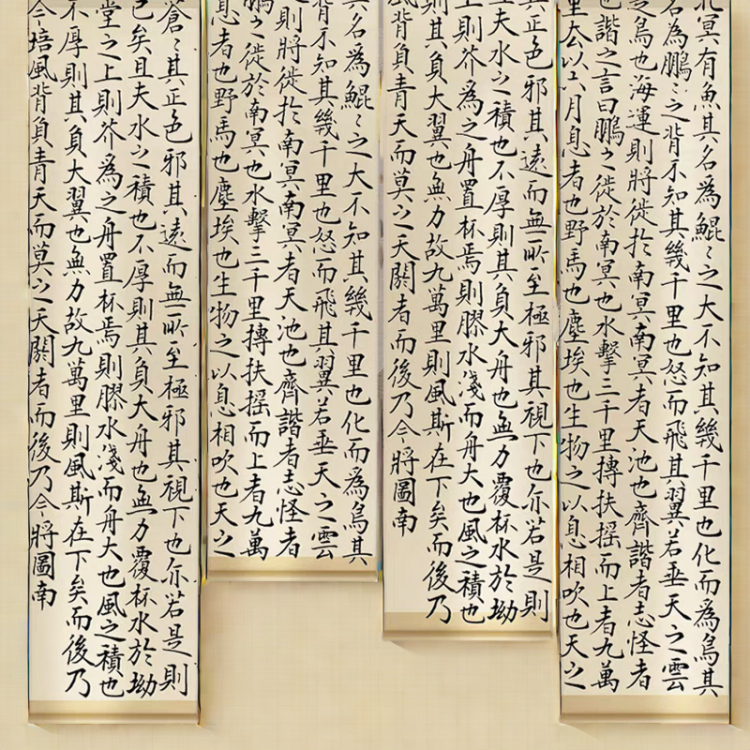 北冥有魚其名為鯤〻之大不知其幾千里也化而為鳥其
名為鵬〻之背不知其幾千里也怒而飛其翼若垂天之雲
是鳥也海運則將徙於南冥南冥者天池也齊諧者志怪者
也諧之言曰鵬之徙於南冥也水擊三千里摶扶搖而上者九萬
里去以六月息者也野馬也塵埃也生物之以息相吹也天之
其正色邪其遠而無所至極邪其視下也亦若是則
夫水之積也不厚則其負大舟也無力覆杯水於坳
上則芥為之舟置杯焉則膠水淺而舟大也風之積也
則其負大翼也無力故九萬里則風斯在下矣而後乃
風背負青天而莫之夭閼者而後乃今將圖南
其名為鯤〻之大不知其幾千里也化而為鳥其
背不知其幾千里也怒而飛其翼若垂天之雲
則將徙於南冥南冥者天池也齊諧者志怪者
鵬之徙於南冥也水擊三千里摶扶搖而上者九萬
息者也野馬也塵埃也生物之以息相吹也天之
蒼〻其正色邪其遠而無所至極邪其視下也亦若是則
已矣且夫水之積也不厚則其負大舟也無力覆杯水於坳
堂之上則芥為之舟置杯焉則膠水淺而舟大也風之積也
不厚則其負大翼也無力故九萬里則風斯在下矣而後乃
今培風背負青天而莫之夭閼者而後乃今將圖南